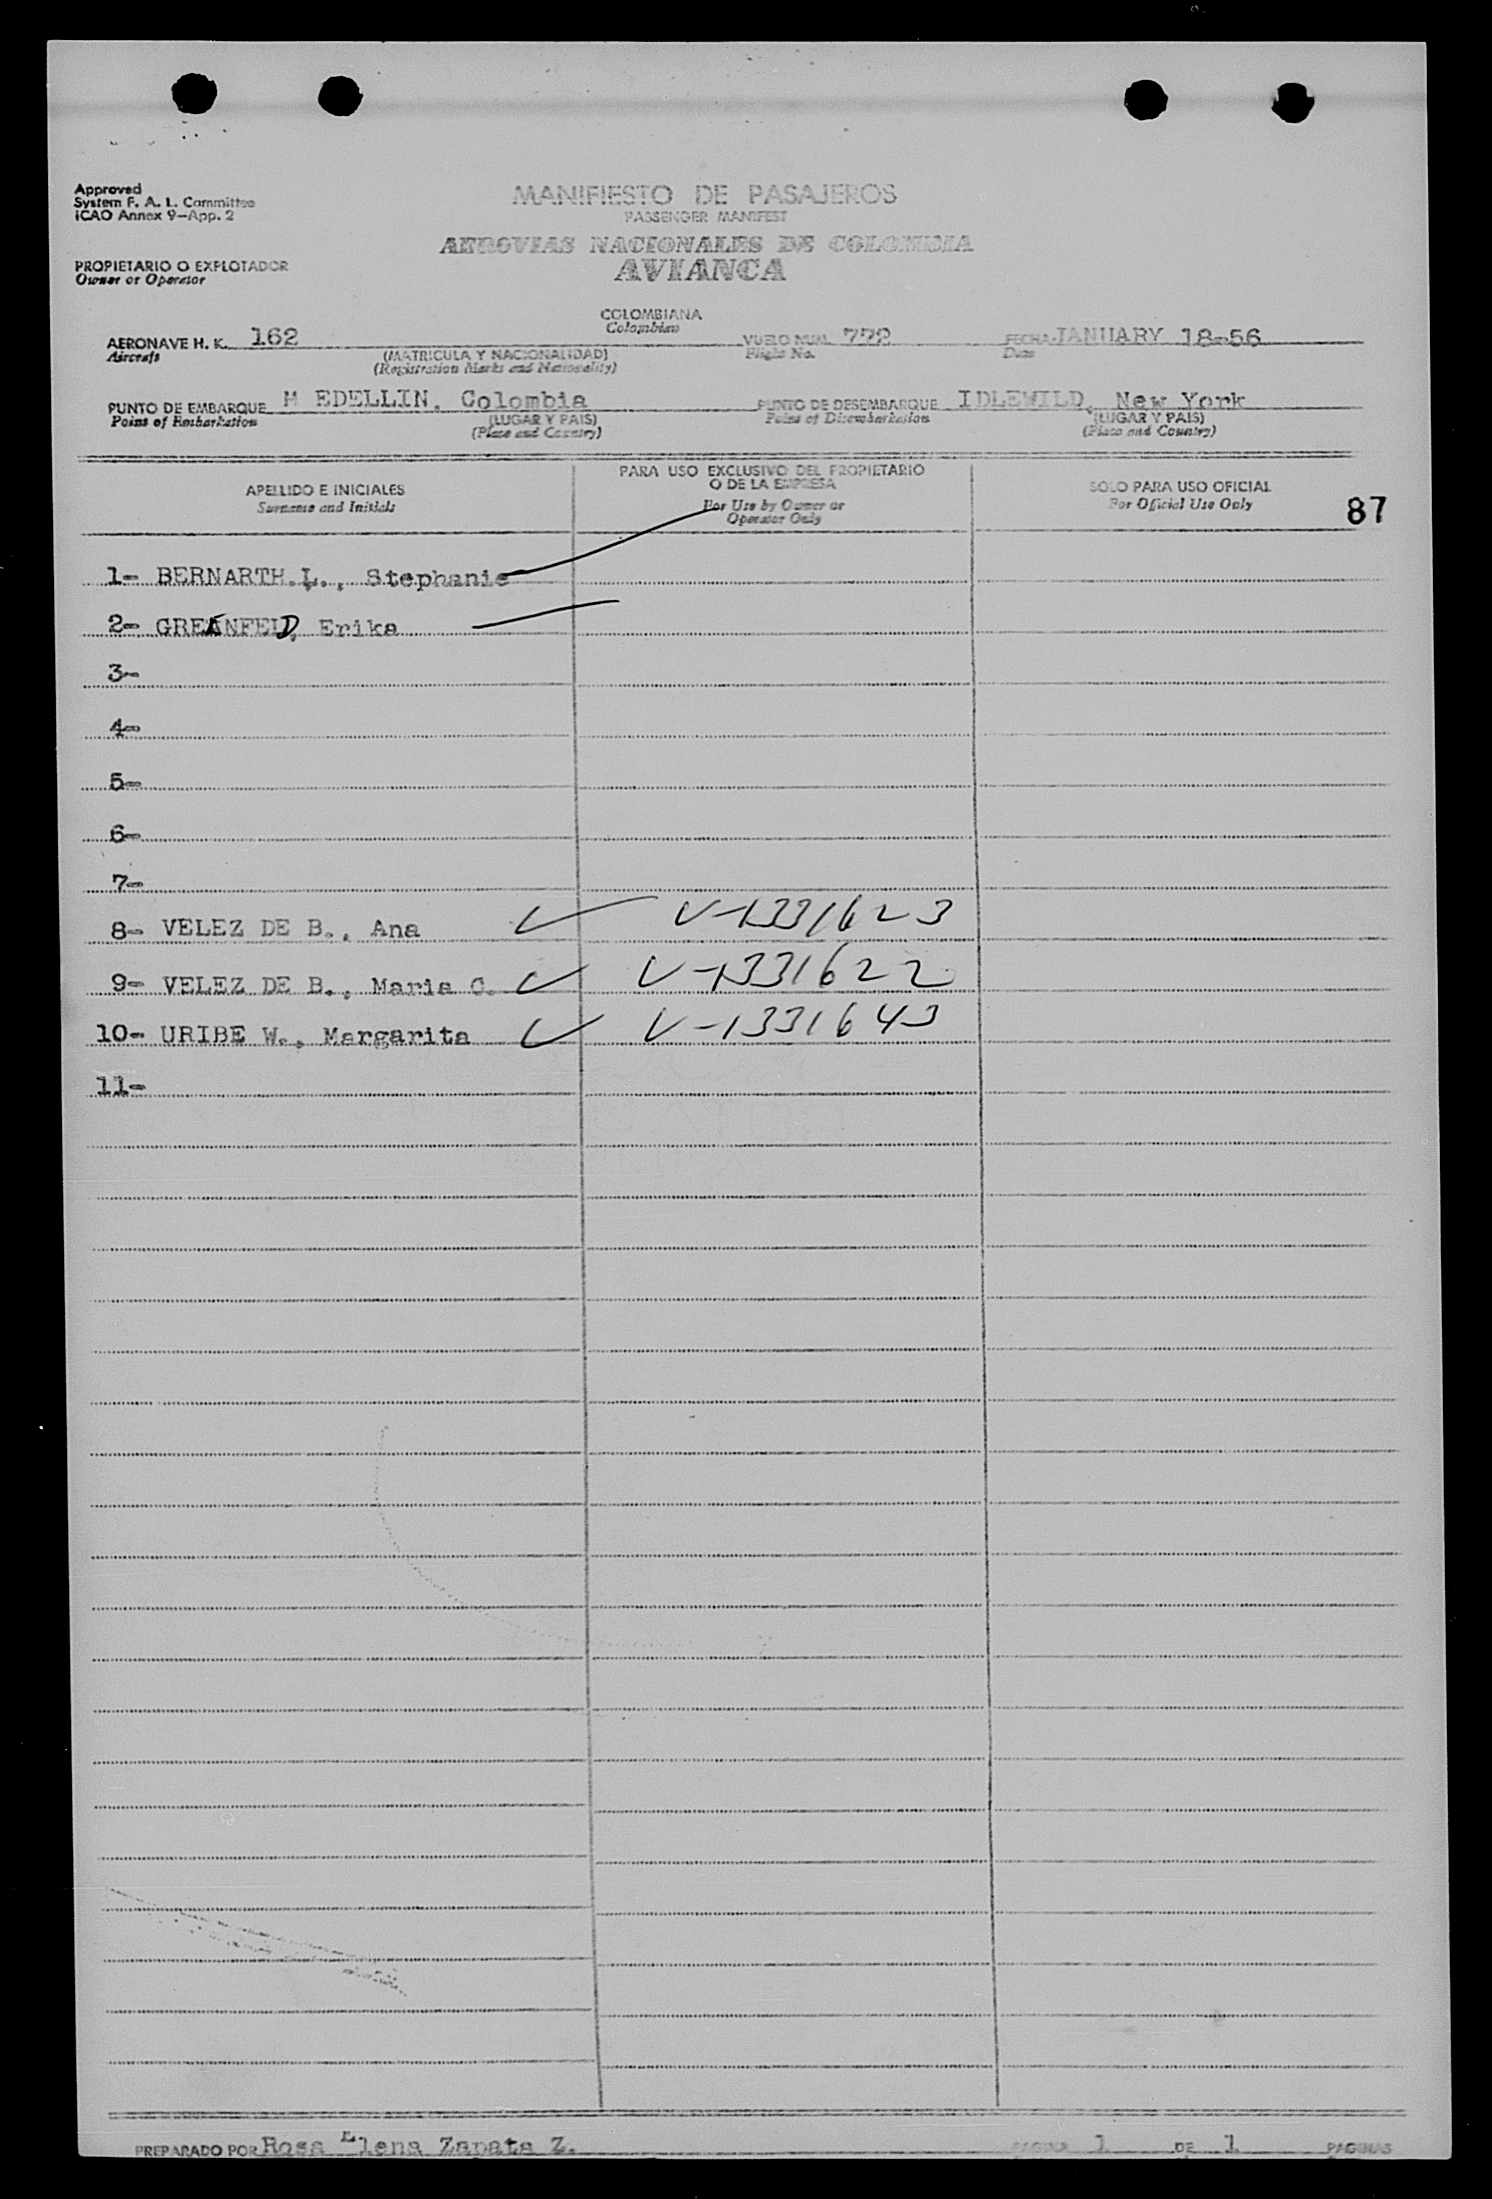 Approved
System F. A. L. Committee
ICAO Annex 9—App. 2
MANIFIESTO DE PASAJEROS
PASSENGER MANIFEST
AEROVIAS NACIONALES DE COLOMBIA
AVIANCA
PROPIETARIO O EXPLOTADOR
Owner or Operator
COLOMBIANA
Colombian
AERONAVE H. K. 162 VUELO NUM. 772 FECHA JANUARY 18-56
Aircraft (MATRICULA Y NACIONALIDAD) Flight No. Date
(Registration Marks and Nationality)
PUNTO DE EMBARQUE M EDELLIN, Colombia PUNTO DE DESEMBARQUE IDLEWILD, New York
Point of Embarkation (LUGAR Y PAIS) Point of Disembarkation (LUGAR Y PAIS)
(Place and Country) (Place and Country)
APELLIDO E INICIALES
Surname and Initials
PARA USO EXCLUSIVO DEL PROPIETARIO
O DE LA EMPRESA
For Use by Owner or
Operator Only
SOLO PARA USO OFICIAL
For Official Use Only
87
1- BERNARTH.L., Stephanie
2- GREANFELD, Erika
3-
4-
5-
6-
7-
8- VELEZ DE B., Ana V-1331623
9- VELEZ DE B., Maria C. V-1331622
10- URIBE W., Margarita V-1331643
11-
PREPARADO POR Rosa Elena Zapata Z. PAGINA 1 DE 1 PAGINAS